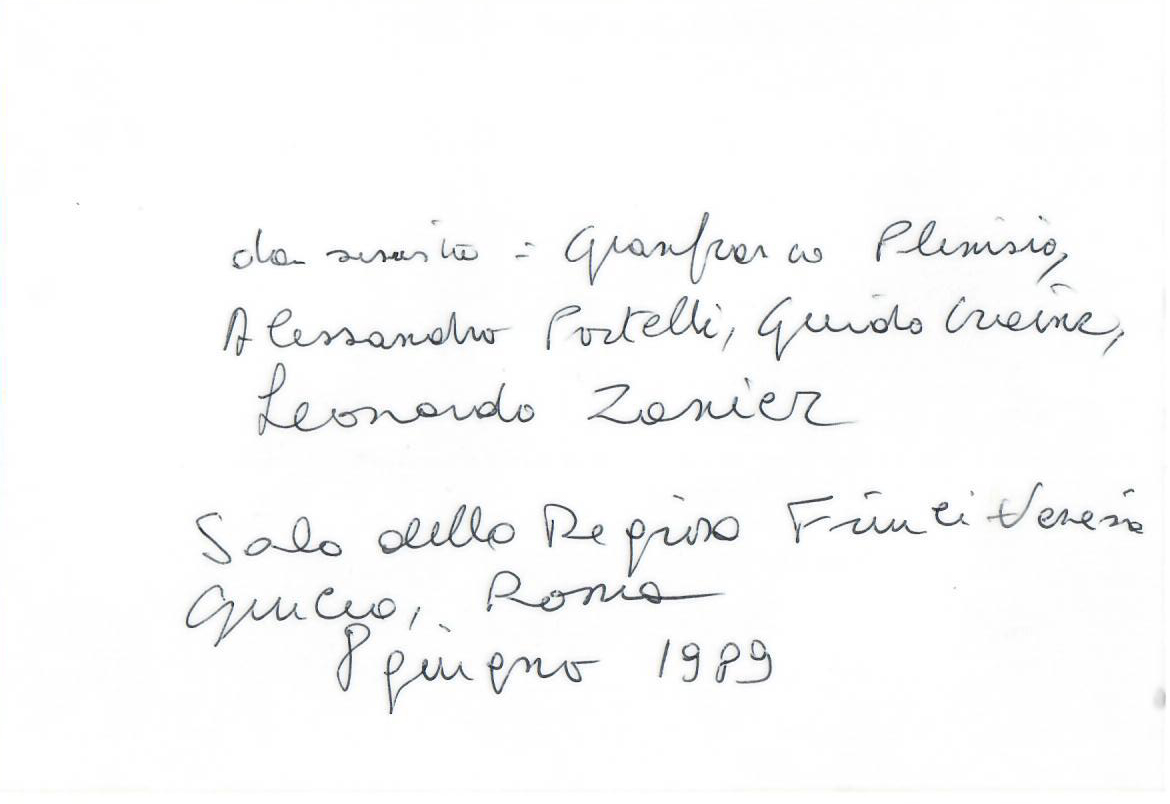 da sinistra: Gianfranco Plenisio,
Alessandro Portelli, Guido Crainz,
Leonardo Zanier
Sala della Regione Friuli Venezia
Giulia, Roma
8 giugno 1989